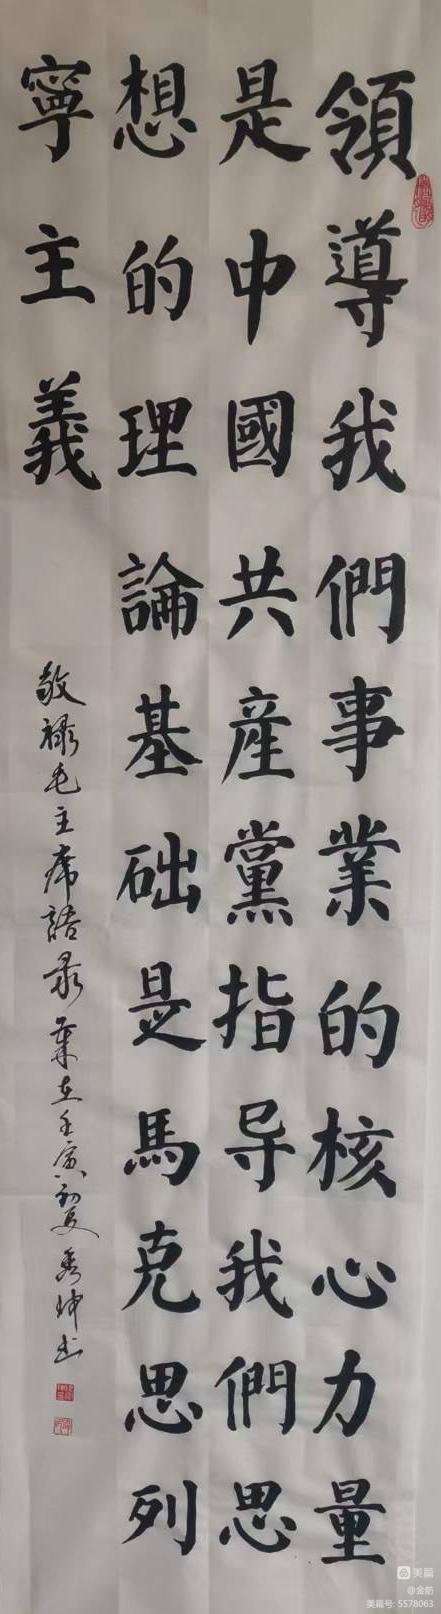 領導我們事業的核心力量
是中國共產黨指导我們思
想的理論基础是馬克思列
寧主義
敬錄毛主席語录 歲在壬寅初夏 秀坤书
美篇
@金舫
美篇号: 5578063